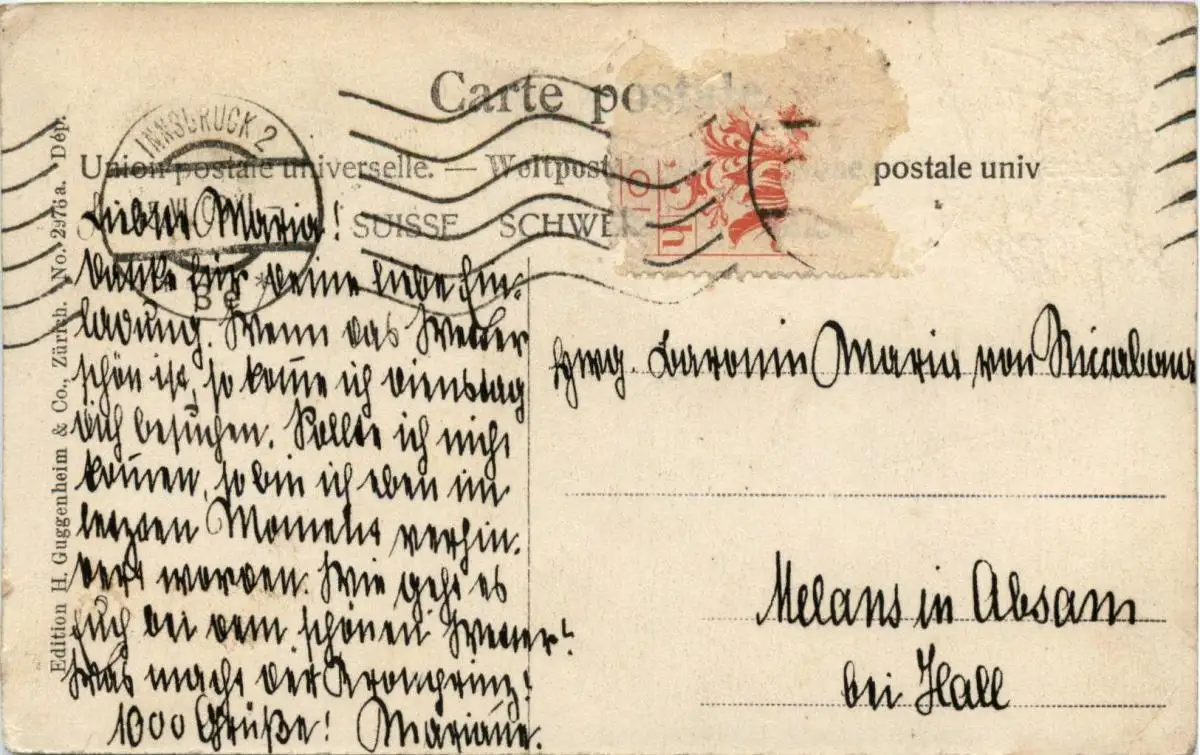 Carte postale
Union postale universelle. — Weltpost postale univ
SUISSE SCHWEI
INNSBRUCK 2
Edition H. Guggenheim & Co., Zürich. No. 2976 a. Dép.
Liebste Maria!
Danke für deine liebe Ein-
ladung. Wenn das Wetter
schön ist, so kom̄e ich Dienstag
dich besuchen. Sollte ich nicht
kom̄en, so bin ich eben im
letzten Moment verhin-
dert worden. Wie geht es
Euch bei dem schönen Wetter?
Was macht der Kronprinz?
1000 Grüße! Mariane.
Baronin Maria von Riccabona
Melans in Absam
bei Hall